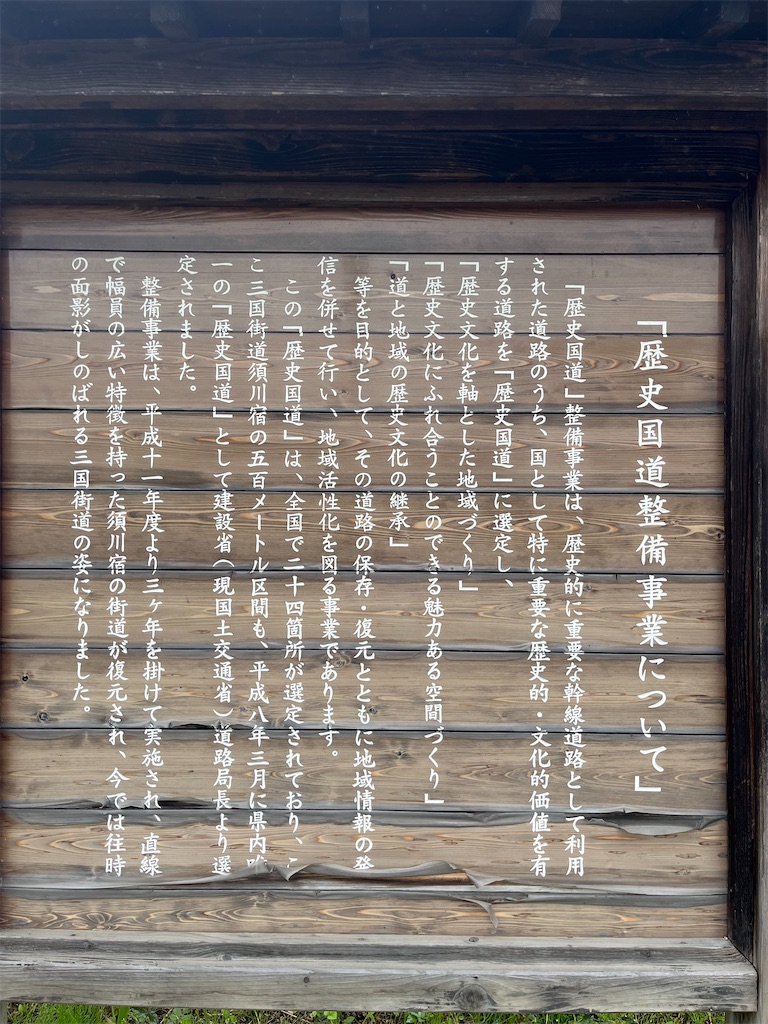 「歴史国道整備事業について」
「歴史国道」整備事業は、歴史的に重要な幹線道路として利用
された道路のうち、国として特に重要な歴史的・文化的価値を有
する道路を「歴史国道」に選定し、
「歴史文化を軸とした地域づくり」
「歴史文化にふれ合うことのできる魅力ある空間づくり」
「道と地域の歴史文化の継承」
等を目的として、その道路の保存・復元とともに地域情報の発
信を併せて行い、地域活性化を図る事業であります。
この「歴史国道」は、全国で二十四箇所が選定されており、こ
こ三国街道須川宿の五百メートル区間も、平成八年三月に県内唯
一の「歴史国道」として建設省(現国土交通省)道路局長より選
定されました。
整備事業は、平成十一年度より三ヶ年を掛けて実施され、直線
で幅員の広い特徴を持った須川宿の街道が復元され、今では往時
の面影がしのばれる三国街道の姿になりました。